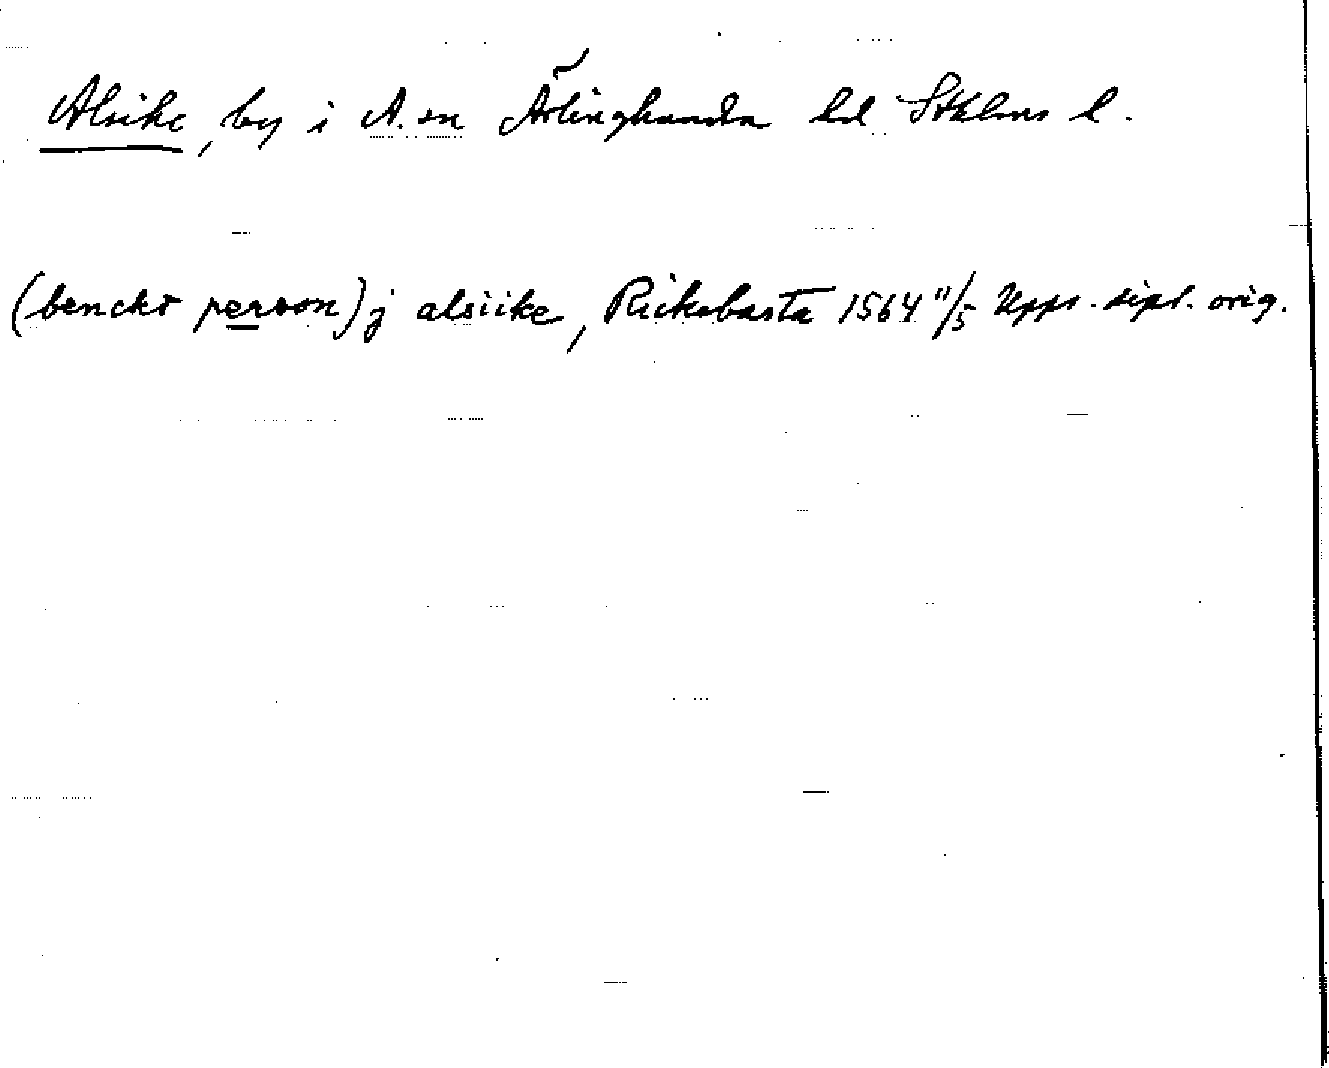 Alsike, by i A. sn Ärlinghundra hd Sthlms l.
(benckt person) j alsiike, Rickebasta 1564 11/5 Upps. dipl. orig.